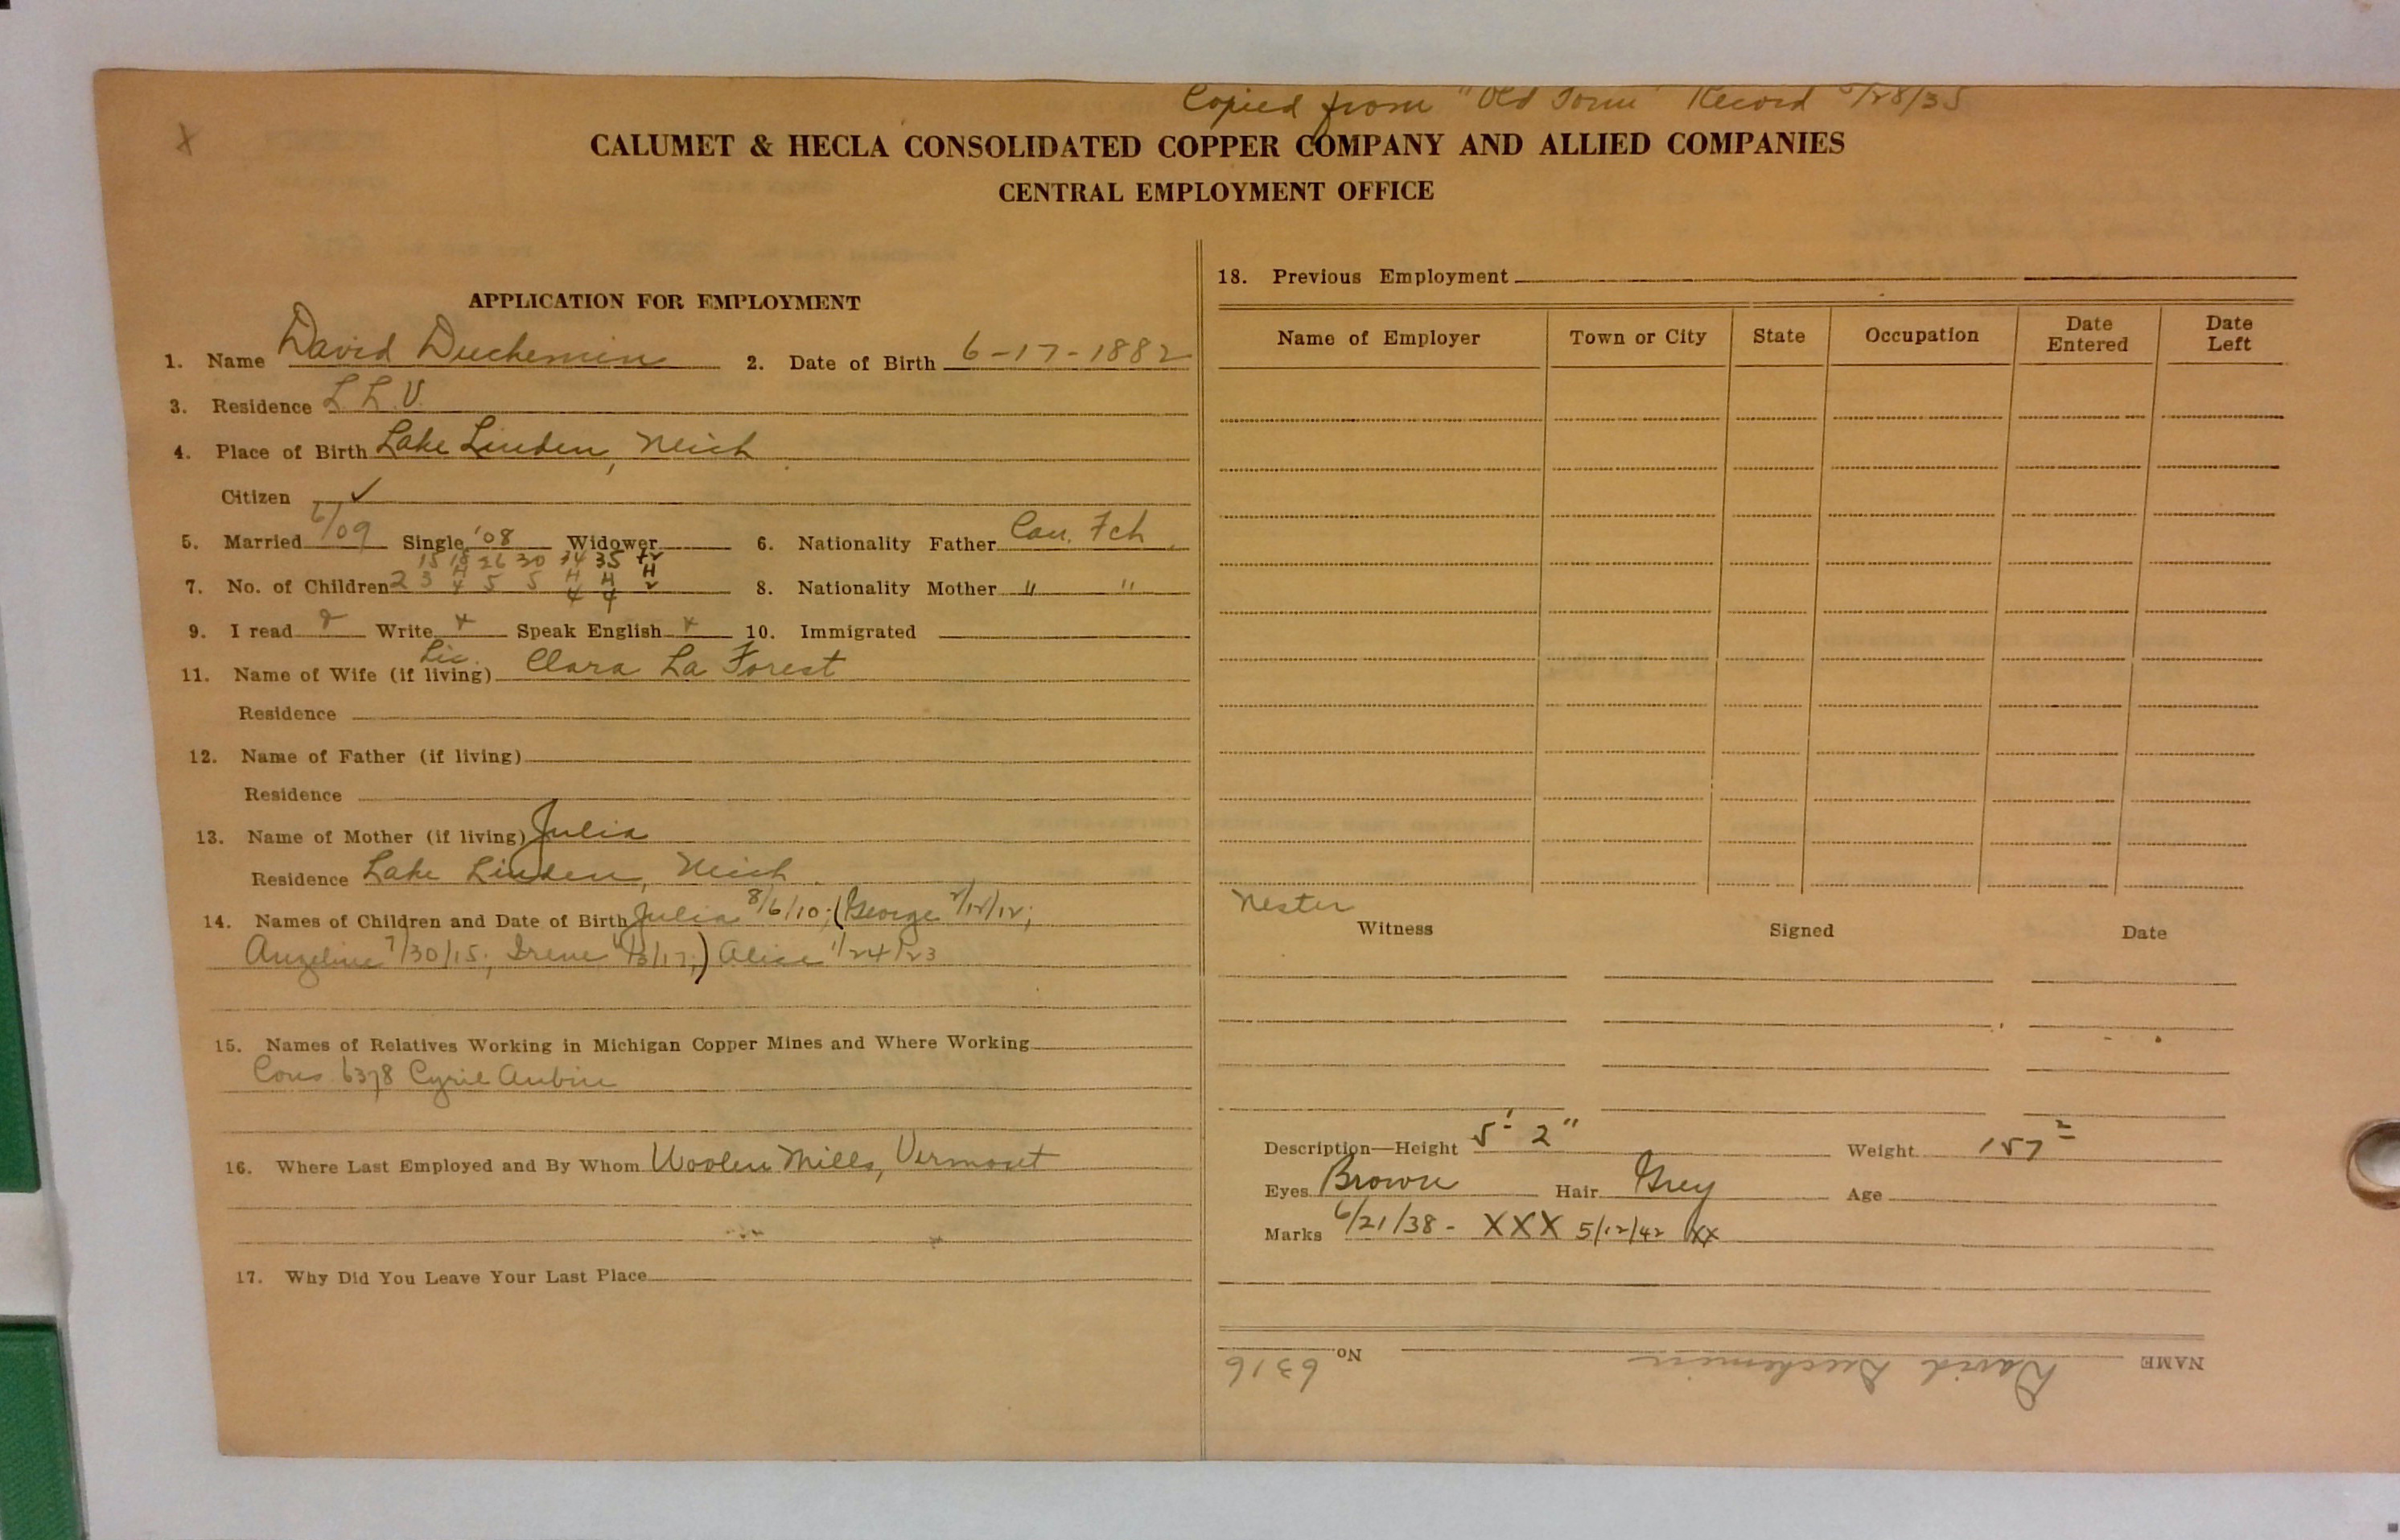 Copied from "Old Form" Record /28/35
X
CALUMET & HECLA CONSOLIDATED COPPER COMPANY AND ALLIED COMPANIES
CENTRAL EMPLOYMENT OFFICE
APPLICATION FOR EMPLOYMENT
1. Name David Duchemin 2. Date of Birth 6-17-1882
3. Residence L.L.V.
4. Place of Birth Lake Linden, Mich
Citizen ✓
5. Married 6/09 Single '08 Widower 6. Nationality Father Can. Fch.
15 18 26 30 34 35 42
7. No. of Children 2 3 4 5 5 4 4 2 8. Nationality Mother " "
9. I read Write x Speak English x 10. Immigrated
Liv.
11. Name of Wife (if living) Clara La Forest
Residence
12. Name of Father (if living)
Residence
13. Name of Mother (if living) Julia
Residence Lake Linden, Mich.
14. Names of Children and Date of Birth Julia 8/6/10; (George 2/12/12;
Angeline 7/30/15; Irene /17;) Alice 1/24/23
15. Names of Relatives Working in Michigan Copper Mines and Where Working
Cous 6378 Cyril Aubin
16. Where Last Employed and By Whom Woolen Mills, Vermont
17. Why Did You Leave Your Last Place
18. Previous Employment
Name of Employer Town or City State Occupation Date Entered Date Left
Nester
Witness Signed Date
Description—Height 5' 2" Weight 157
Eyes Brown Hair Grey Age
Marks 6/21/38 - XXX 5/12/42 XX
NAME David Duchemin No. 6316